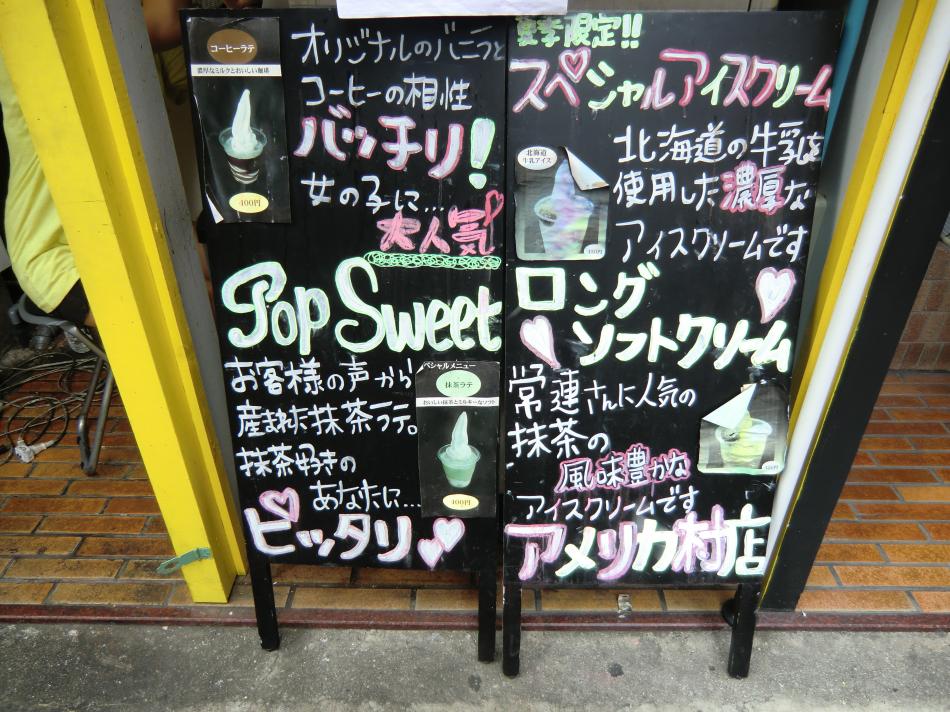 コーヒーラテ
濃厚なミルクとおいしい珈琲
400円
オリジナルのバニラと
コーヒーの相性
バッチリ!
女の子に...
大人気
Pop Sweet
お客様の声から
産まれた抹茶ラテ。
抹茶好きの
あなたに...
ピッタリ
スペシャルメニュー
抹茶ラテ
おいしい抹茶とミルキーなソフト
400円
夏季限定!!
スペシャルアイスクリーム
北海道
牛乳アイス
北海道の牛乳を
使用した濃厚な
アイスクリームです
ロング
ソフトクリーム
常連さんに人気の
抹茶の
風味豊かな
アイスクリームです
アメリカ村店